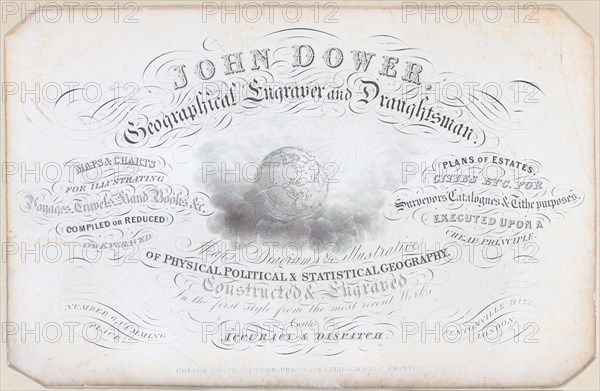 JOHN DOWER,
Geographical Engraver and Draughtsman.
MAPS & CHARTS
FOR ILLUSTRATING
Voyages, Travels, Hand Books, &c.
COMPILED OR REDUCED
AND ENGRAVED
PLANS OF ESTATES,
CITIES ETC. FOR
Surveyors, Catalogues & Tithe purposes,
EXECUTED UPON A
CHEAP PRINCIPLE.
Maps Diagrams & illustrative
OF PHYSICAL, POLITICAL & STATISTICAL GEOGRAPHY,
Constructed & Engraved
In the first Style from the most recent Works
with
ACCURACY & DISPATCH.
NUMBER 6, CUMMING
PLACE,
PENTONVILLE HILL,
LONDON.